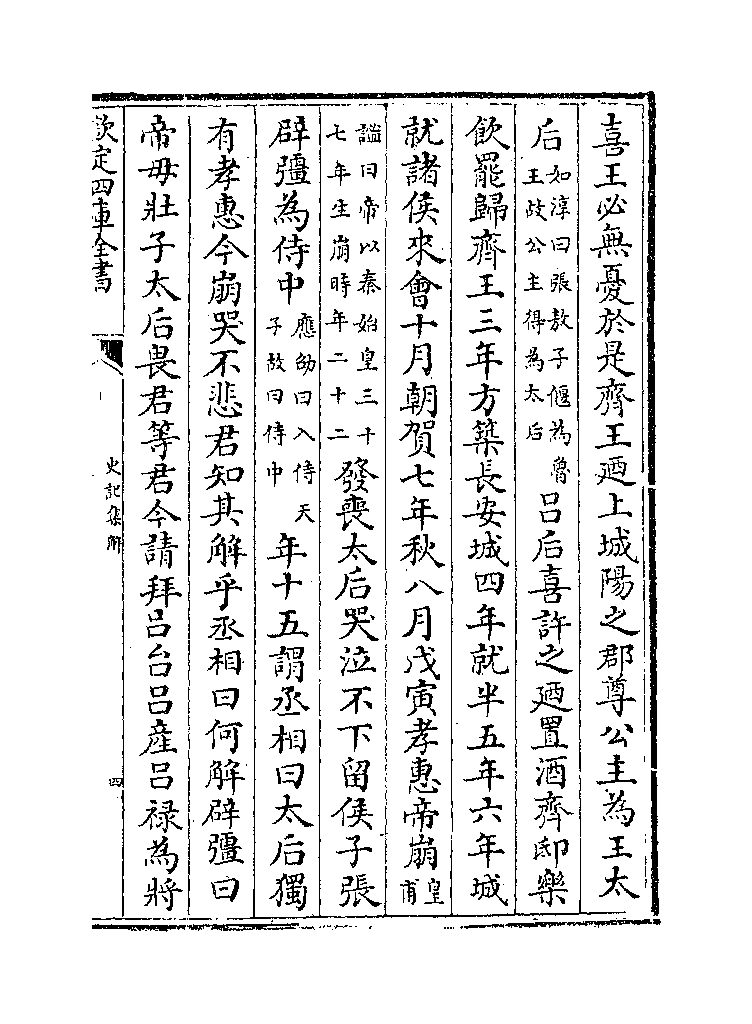 喜王必無憂於是齊王廼上城陽之郡尊公主為王太
后如淳曰張敖子偃為魯王故公主得為太后吕后喜許之廼置酒齊邸樂
飲罷歸齊王三年方築長安城四年就半五年六年城
就諸侯來會十月朝賀七年秋八月戊寅孝惠帝崩皇甫
謐曰帝以秦始皇三十七年生崩時年二十二發喪太后哭泣不下留侯子張
辟彊為侍中應劭曰入侍天子故曰侍中年十五謂丞相曰太后獨
有孝惠今崩哭不悲君知其解乎丞相曰何解辟彊曰
帝毋壯子太后畏君等君今請拜吕台吕産吕禄為將
欽定四庫全書
史記集解
四